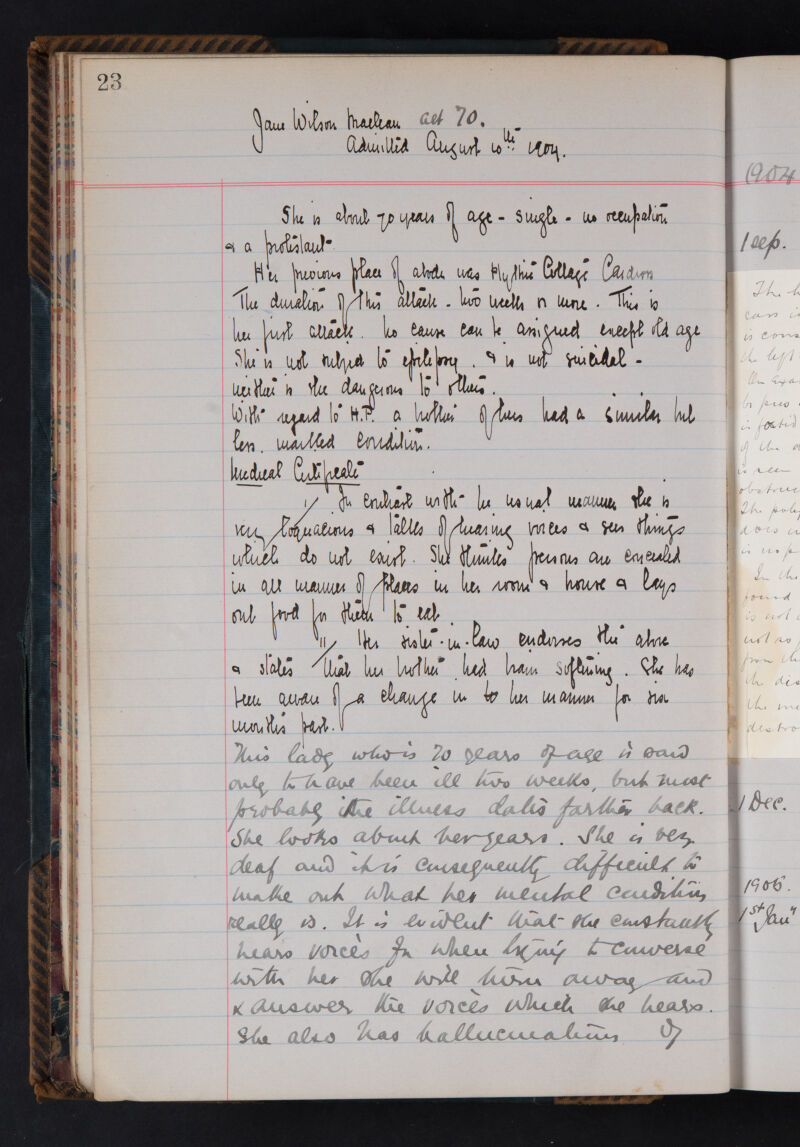 23
Jane Wilson Maclean aet 70.
Admitted August 10th 1904.
She is about 70 years of age - single - no occupation
& a protestant
Her previous place of abode was Cottage Cardross
The duration of this attack - two weeks or more. This is
her first attack. No cause can be assigned except old age
She is not subject to epilepsy. & is not suicidal -
neither is she dangerous to others.
With regard to H.P. a brother of hers had a similar but
less marked condition.
Medical Certificate
1/ In contrast with her usual manner she is
very loquacious & talks of hearing voices & sees things
which do not exist. She thinks persons are concealed
in all manner of places in her room & house & lays
out food for them to eat.
11/ Her sister-in-law endorses the above
& states that her brother had brain softening. She has
been aware of a change in to her manner for six
months past.
This lady who is 70 years of age is said
only to have been ill two weeks, but most
probably the illness dates farther back.
She looks about her years. She is very
deaf and it is consequently difficult to
make out what her mental condition
really is. It is evident that she constantly
hears voices for when trying to converse
with her she will turn away and
x answer the voices which she hears.
She also has hallucinations of
1904
1 Sep.
1 Dec.
1905.
1st Jany